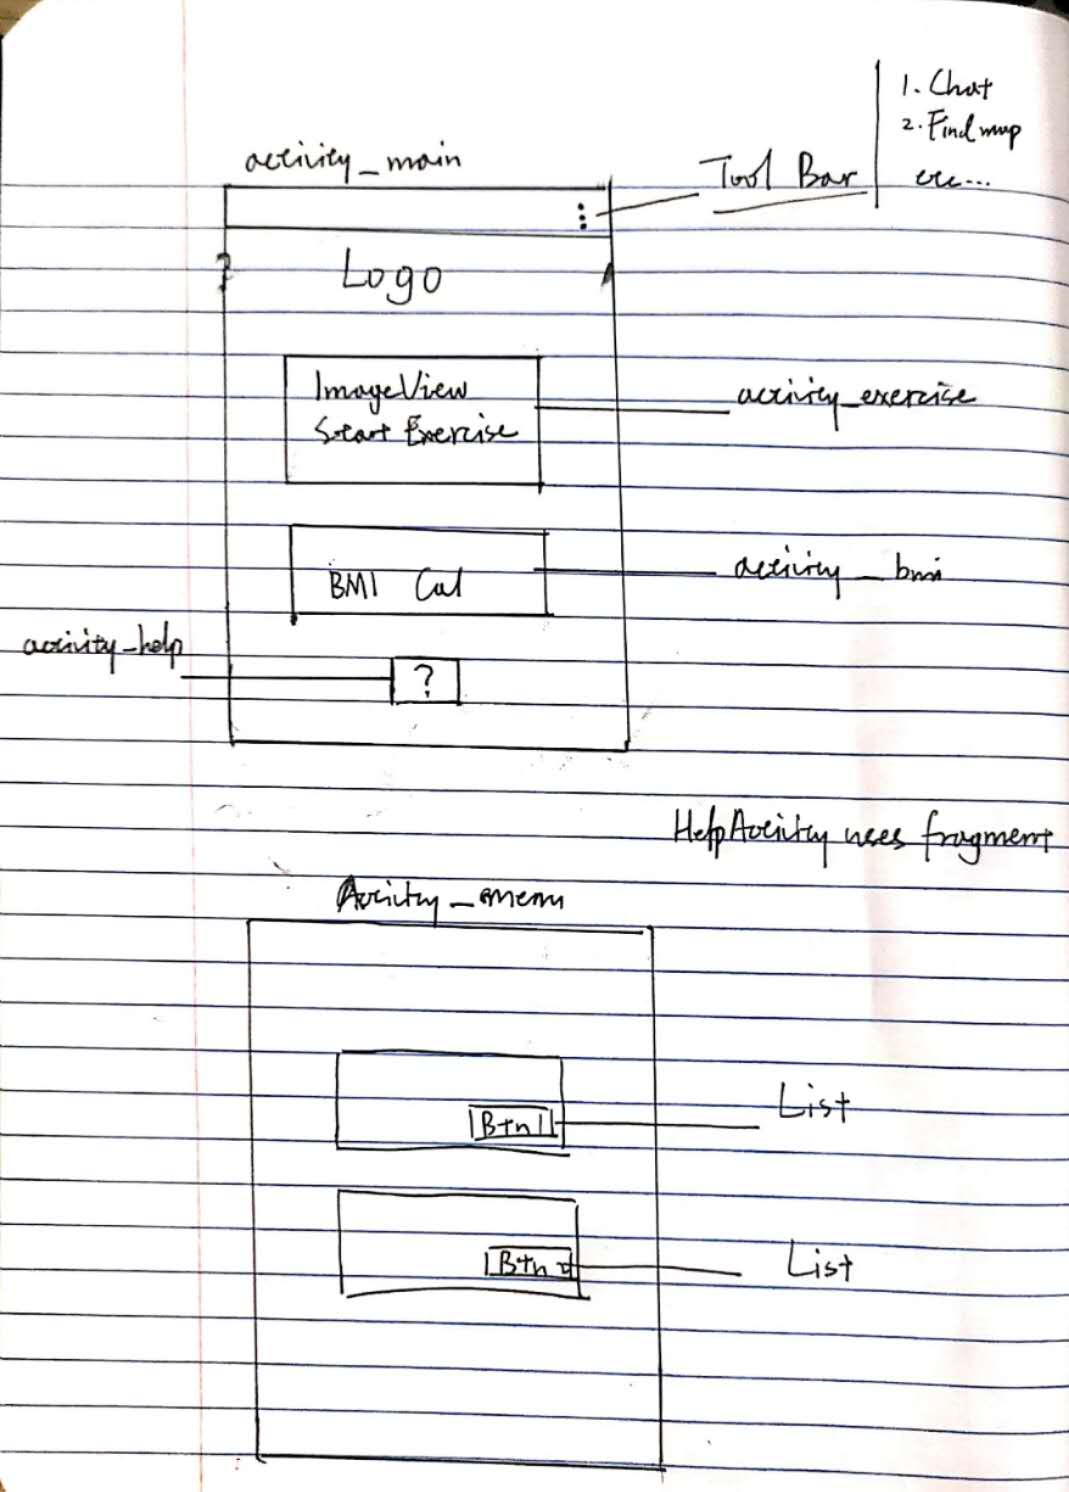 1. Chat
2. Find map
etc...
Tool Bar
activity_main
Logo
ImageView
Start Exercise
activity_exercise
BMI Cal
activity_bmi
activity_help
?
HelpActivity uses fragment
Activity_menu
Btn1
List
Btn2
List